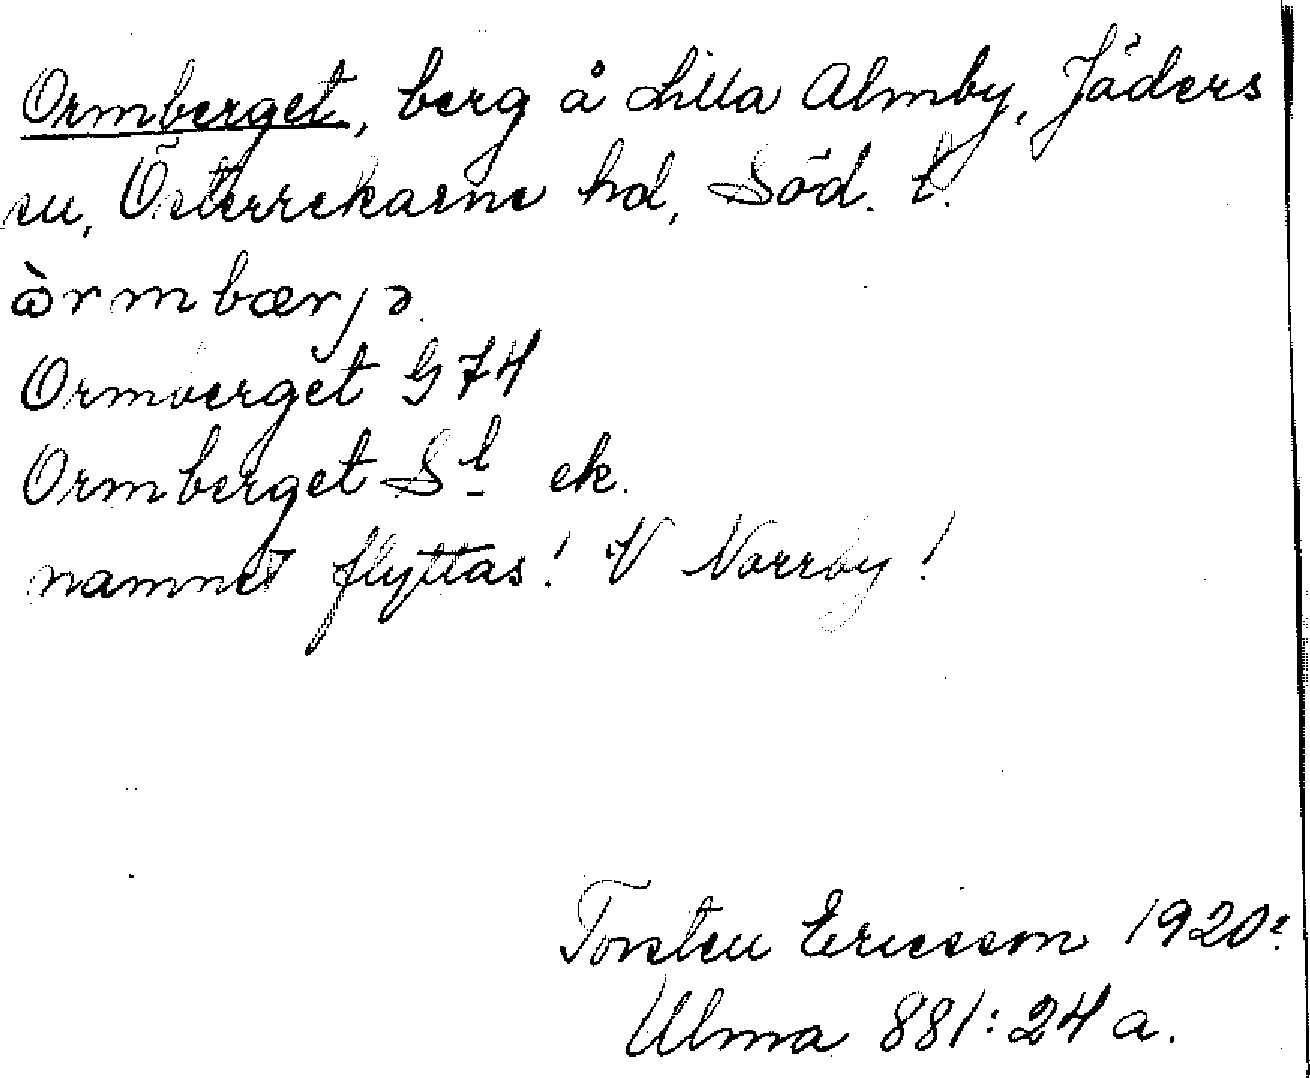 Ormberget, berg å Lilla Almby, Jäders
sn, Österrekarne hd, Söd. l.
òrmbærjə.
Ormberget G 74
Ormberget S l ek.
namnet flyttas! V Norrby!
Torsten Ericsson 1920
Ulma 881:24 a.